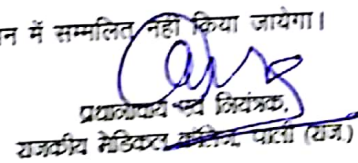 न में सम्मलित नहीं किया जायेगा।
प्रधानाचार्य एवं नियंत्रक,
राजकीय मेडिकल कॉलेज, पाली (राज.)